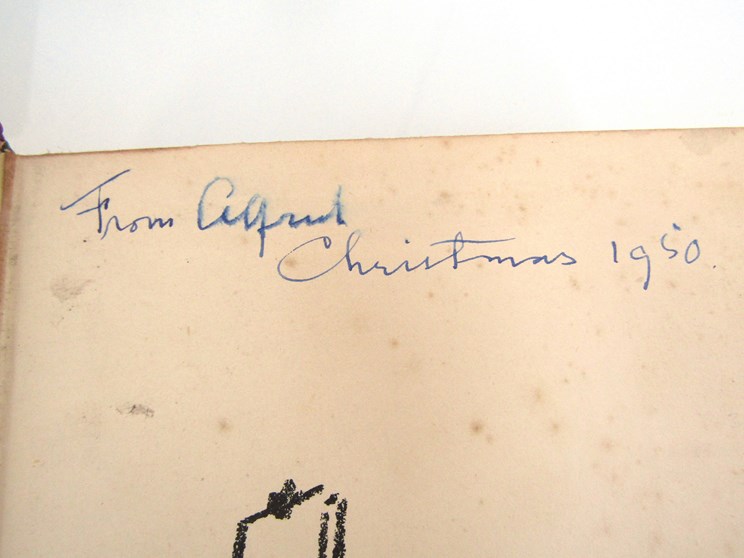 From Alfred
Christmas 1950.